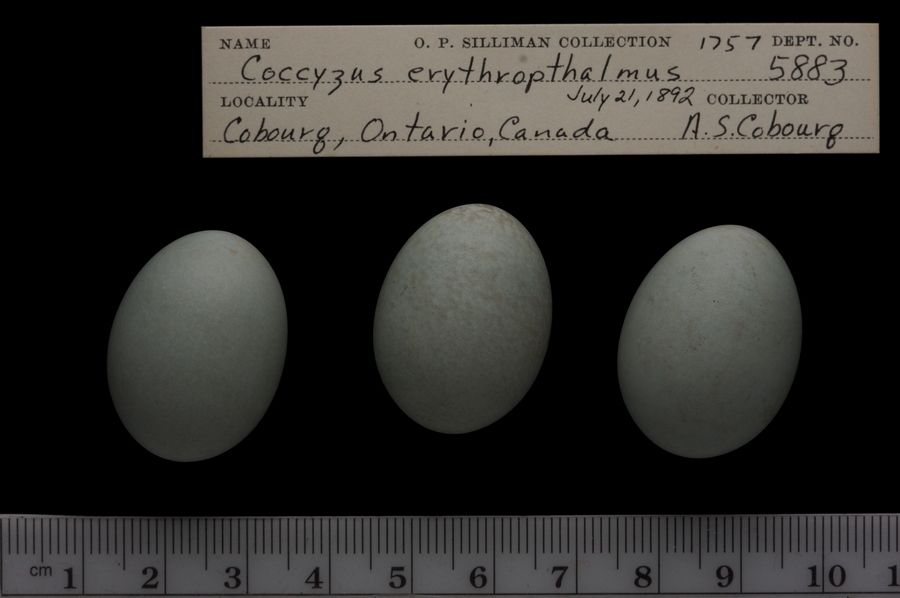 NAME O. P. SILLIMAN COLLECTION 1757 DEPT. NO.
Coccyzus erythropthalmus 5883
LOCALITY July 21, 1892 COLLECTOR
Cobourg, Ontario, Canada A. S. Cobourg
cm 1 2 3 4 5 6 7 8 9 10 1